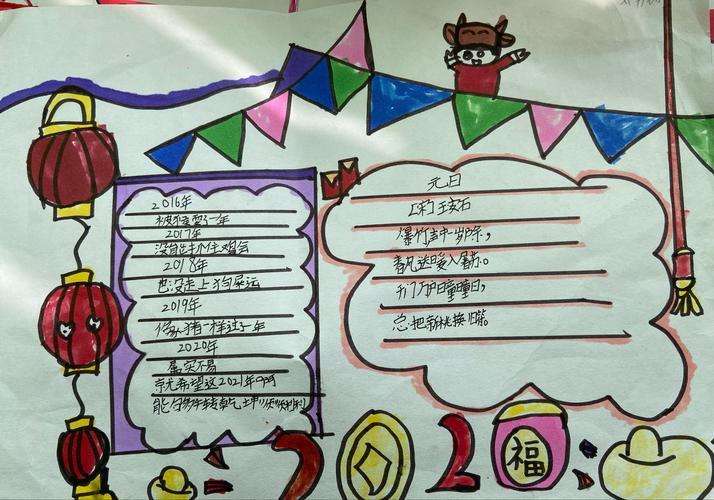 2016年
被猴耍了一年
2017年
没有出什么鸡会
2018年
也没走上狗屎运
2019年
像猪一样过了一年
2020年
属实不易
就希望这2021年啊
能牛转乾
元日
[宋]王安石
爆竹声中一岁除，
春风送暖入屠苏。
千门万户曈曈日，
总把新桃换旧符。
2
2
福